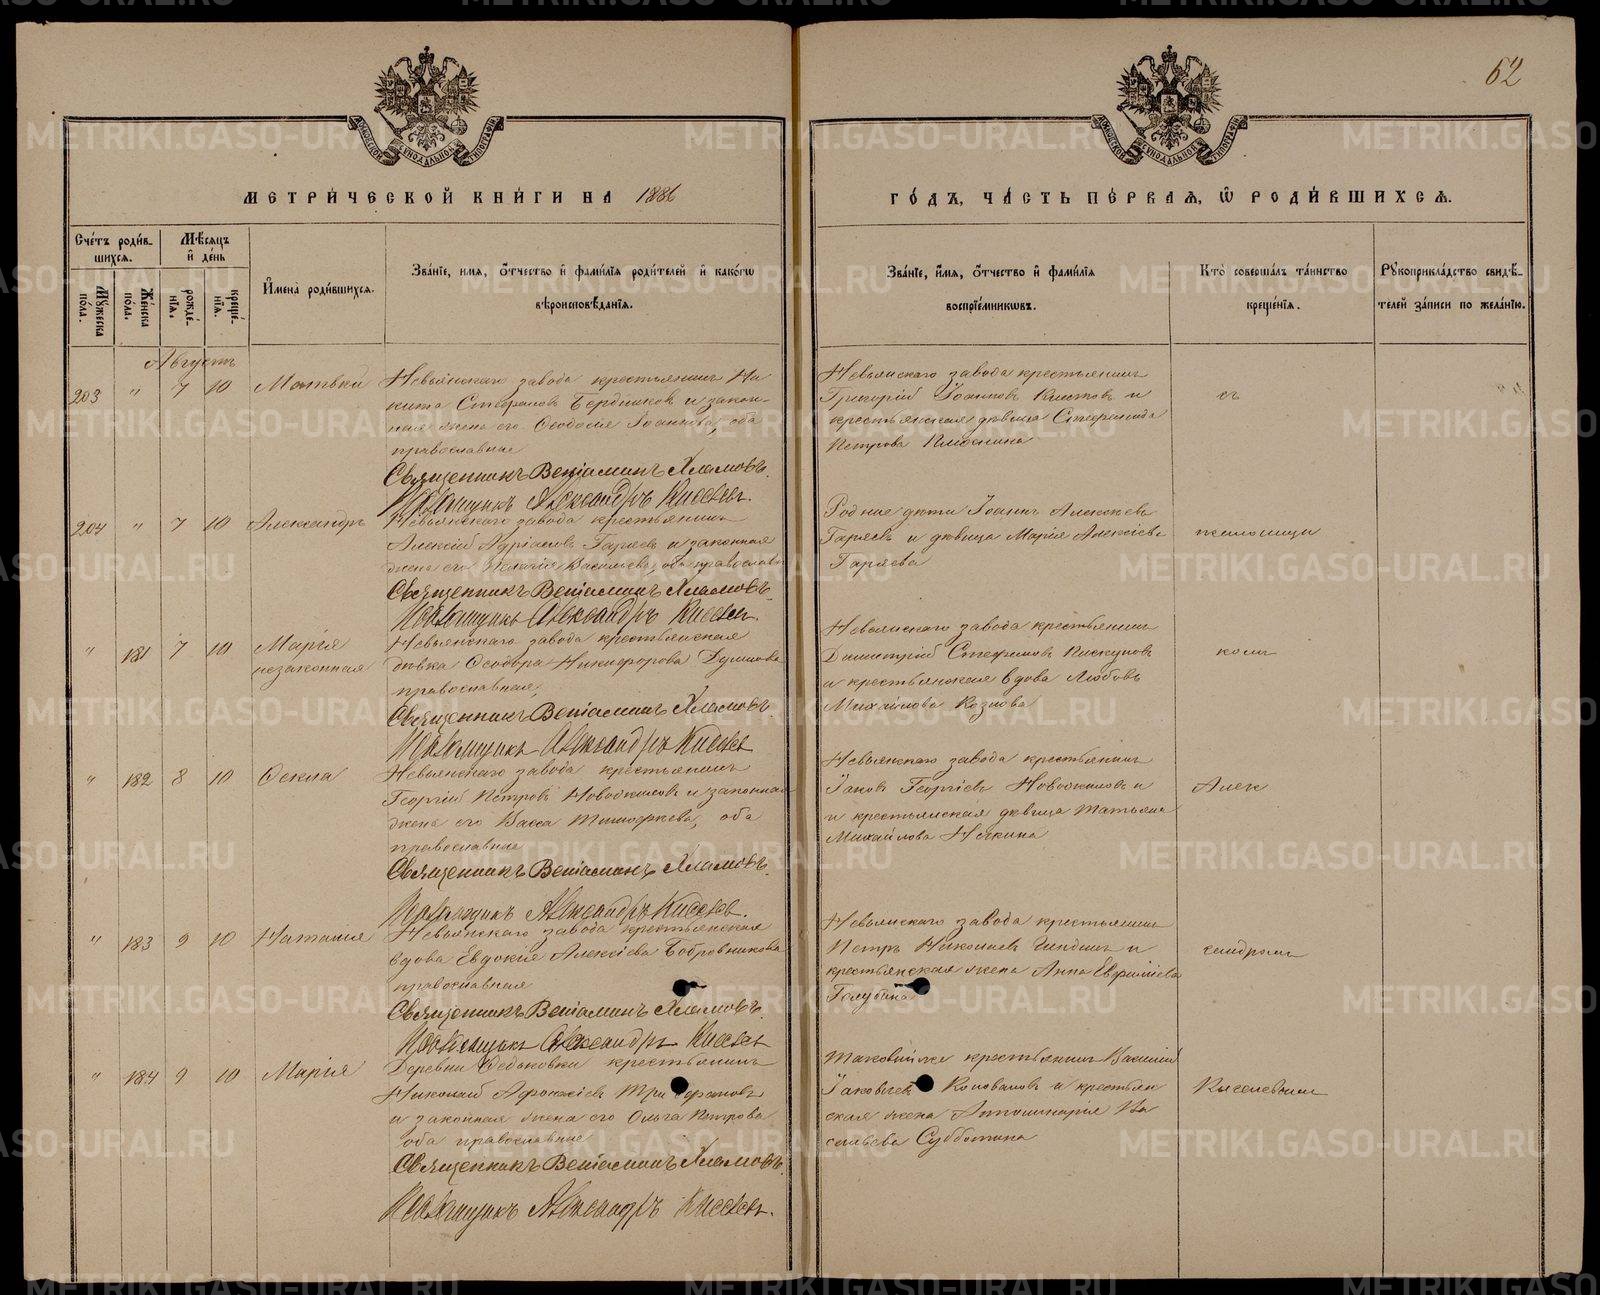 62
МЕТРИЧЕСКОЙ КНИГИ НА 1886
ГОДЪ, ЧАСТЬ ПЕРВАЯ, Ѿ РОДИВШИХСЯ.
Счетъ родившихся.
Мѣсяцъ и день
Мужеска пола.
Женска пола.
рожденія.
крещенія.
Имена родившихся.
Званіе, имя, отчество и фамилія родителей и какогѡ вѣроисповѣданія.
Званіе, имя, отчество и фамилія воспріемникѡвъ.
Кто совершалъ таинство крещенія.
Рукоприкладство свидѣтелей записи по желанію.
Августъ
203 " 7 10 Матвѣй
Невьянскаго завода крестьянинъ Ни
кита Стефановъ Бердниковъ и закон-
ная жена его Ѳеодосія Іоаннова, оба
православные
Священникъ Веніаминъ Хламовъ.
Псаломщикъ Александръ Киселевъ.
Невьянскаго завода крестьянинъ
Григорій Іоанновъ и
крестьянская дѣвица Стефанида
Петрова
съ
204 " 7 10 Александръ
Невьянскаго завода крестьянинъ
Алексій Адріановъ Гаряевъ и законная
жена его Пелагія Васильева, оба православн
Священникъ Веніаминъ Хламовъ.
Псаломщикъ Александръ Киселевъ.
Родные дѣти Іоаннъ Алексѣевъ
Гаряевъ и дѣвица Марія Алексіева
Гаряева
псаломщи
" 181 7 10 Марія
незаконная
Невьянскаго завода крестьянская
дѣвка Ѳеодора Никифорова
православная,
Священникъ Веніаминъ Хламовъ.
Псаломщикъ Александръ Киселевъ
Невьянскаго завода крестьянинъ
Димитрій Стефановъ Пискуновъ
и крестьянская вдова Любовь
Михайлова Козлова
комъ
" 182 8 10 Ѳекла
Невьянскаго завода крестьянинъ
Георгій Петровъ и законная
жена его Васса Тимоѳеева, оба
православные
Священникъ Веніаминъ Хламовъ.
Псаломщикъ Александръ Киселевъ.
Невьянскаго завода крестьянинъ
Іаковъ Георгіевъ и
и крестьянская дѣвица Татьяна
Михайлова
Алек
" 183 9 10 Наталія
Невьянскаго завода крестьянская
вдова Евдокія Алексіева Бобровникова
православная
Священникъ Веніаминъ Хламовъ.
Псаломщикъ Александръ Киселевъ
Невьянскаго завода крестьянинъ
Петръ Николаевъ и
крестьянская жена Анна Евфиміева
Голубина
сандромъ
" 184 9 10 Марія
Деревни Ѳедьковки крестьянинъ
Николай
и законная жена его Ольга Петрова
оба православные
Священникъ Веніаминъ Хламовъ.
Псаломщикъ Александръ Киселевъ.
Таковыйже крестьянинъ Василій
Іаковлевъ Коноваловъ и крестьян
ская жена Аполлинарія Ва
сильева Субботина
Киселевымъ
METRIKI.GASO-URAL.RU